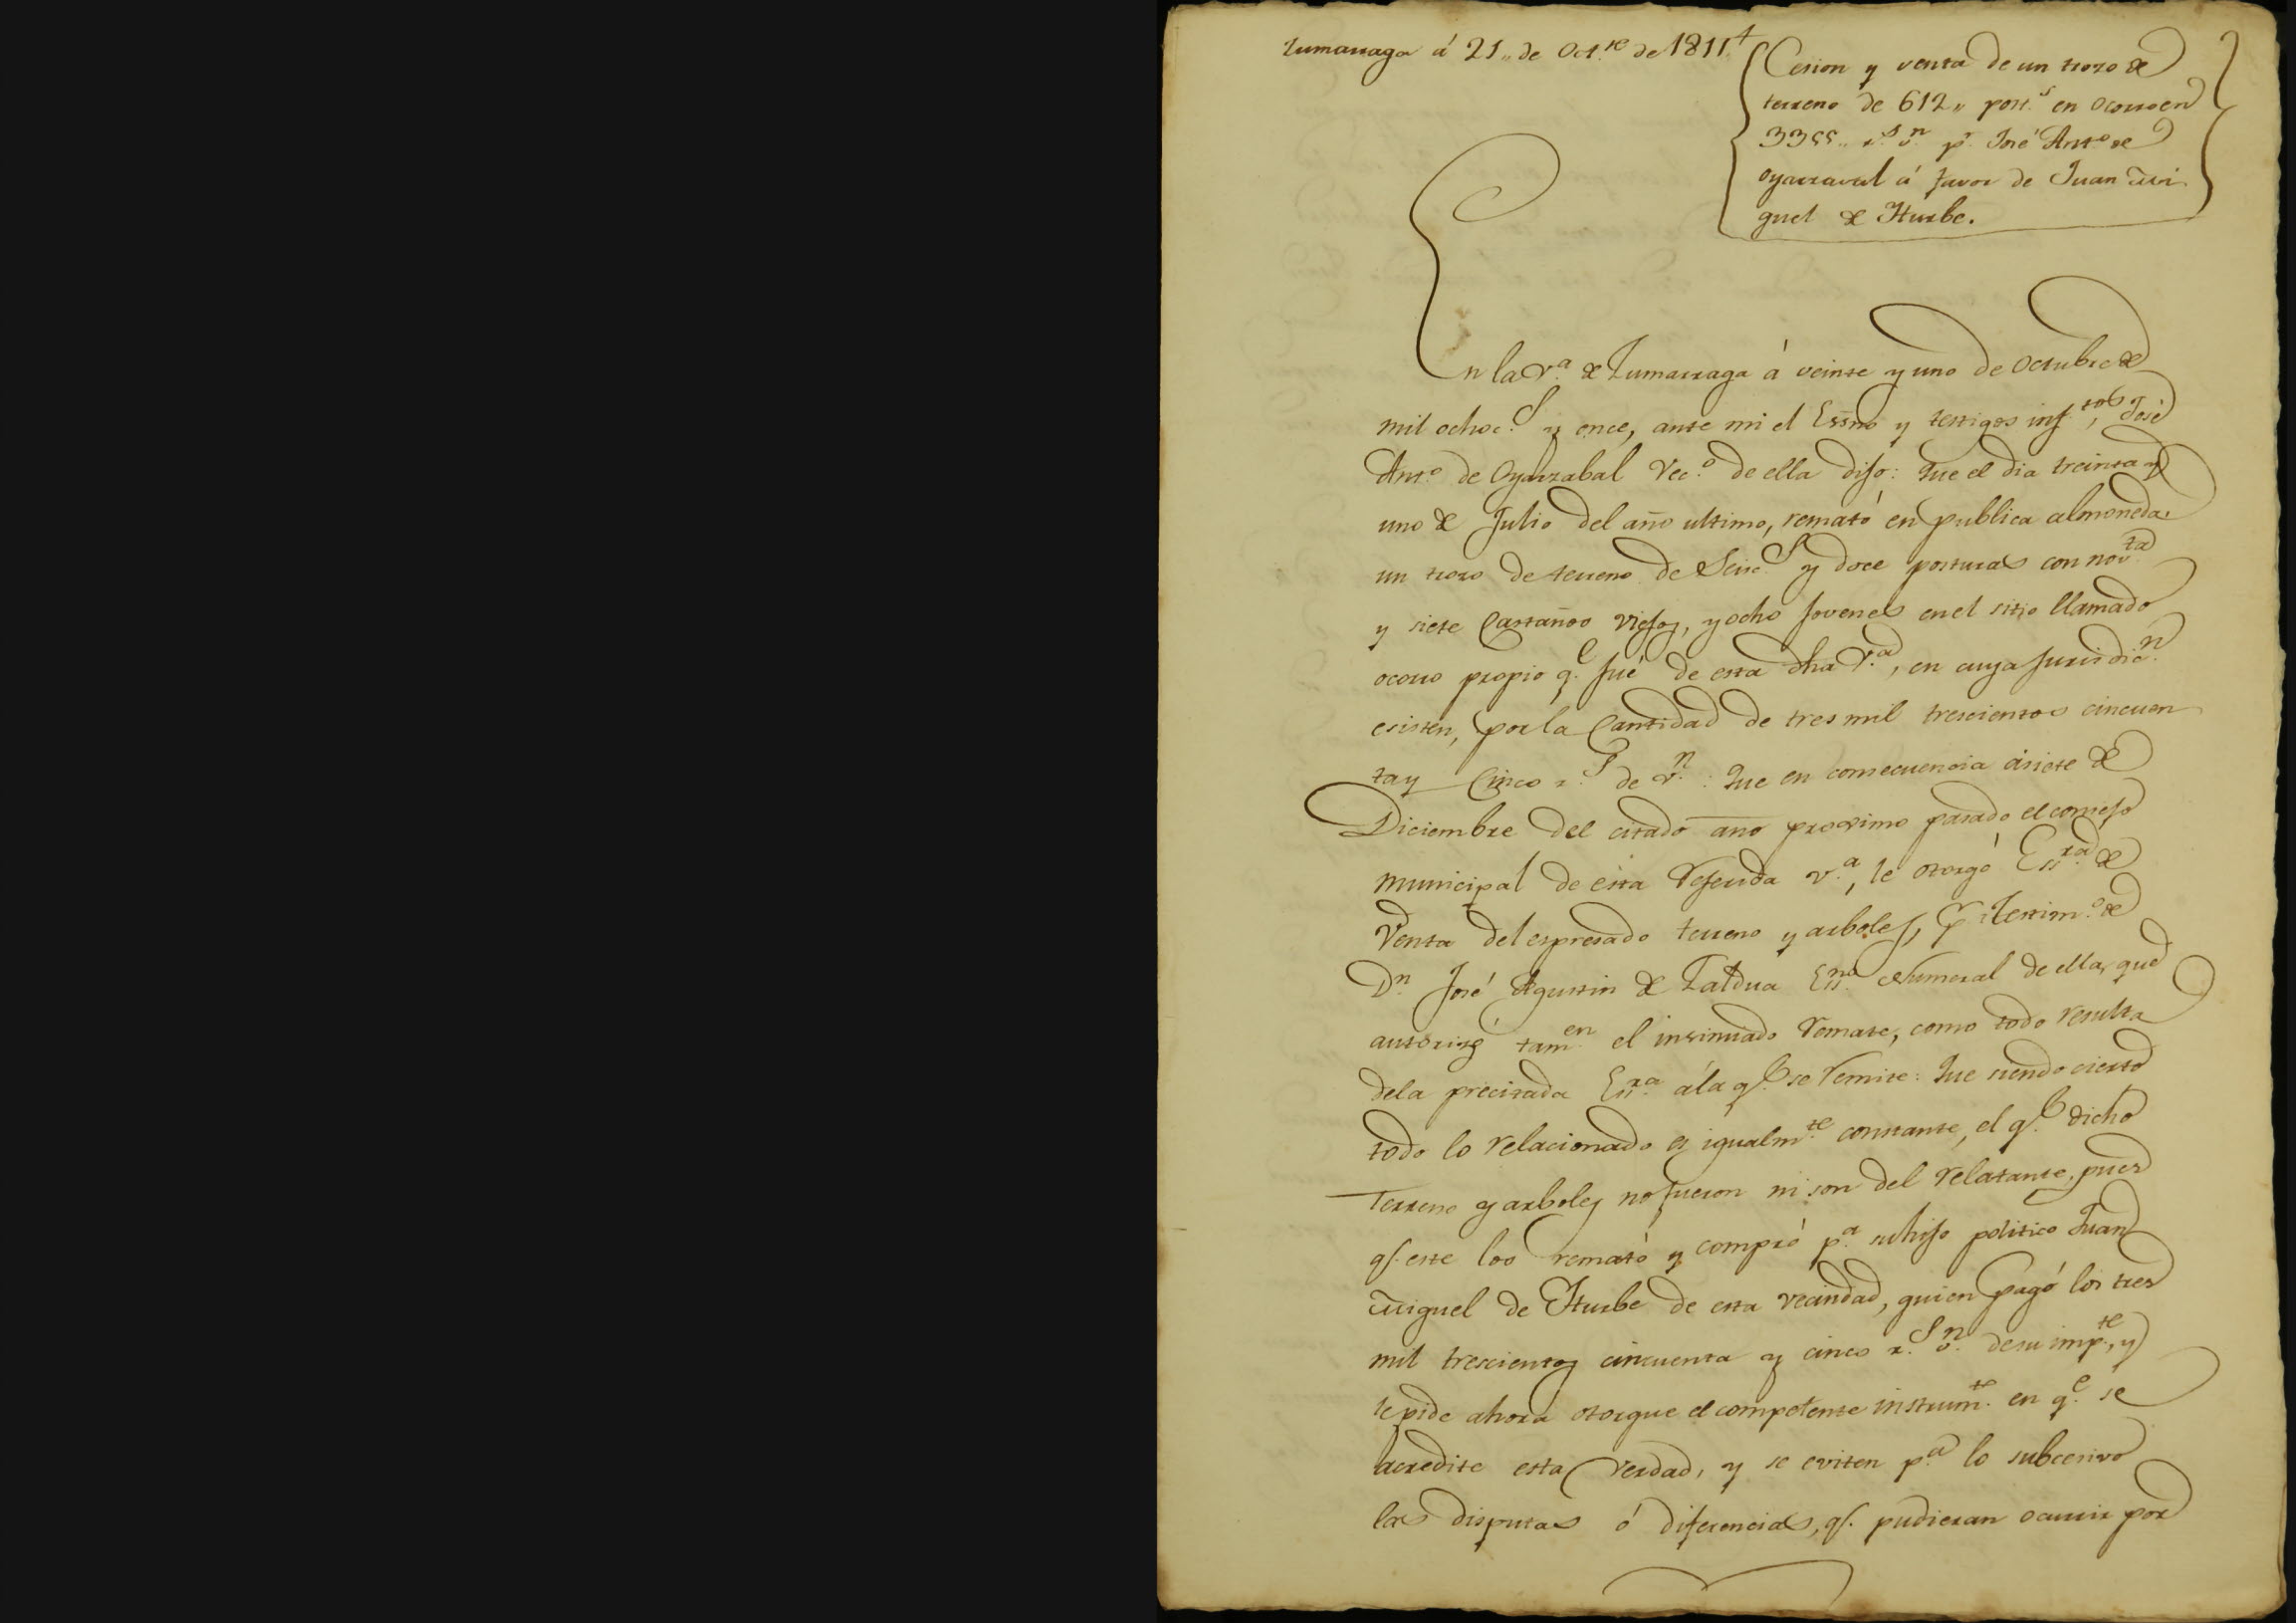 Zumarraga á 21,, de Oct.re de 1811,,
Cesion y venta de un trozo de
terreno de 612,, post.s en Ocorro en
3355,, r.s v.n p.r José Ant.o de
Oyarzaval á favor de Juan Mi-
guel de Yturbe.
En la V.a de Zumarraga á veinte y uno de Octubre de
mil ochoc.s y once, ante mi el Essno y testigos inf.tos, José
Ant.o de Oyarzabal Vec.o de ella dijo: Que el dia treinta y
uno de Julio del año ultimo, remató en publica almoneda
un trozo de terreno de Seisc.s y doce posturas con nov.ta
y siete Castaños viejos, y ocho jovenes en el sitio llamado
ocorro propio q.e fué de esta dha V.a, en cuya jurisdic.n
esisten, por la Cantidad de tres mil trescientos cincuen
ta y Cinco r.s de v.n: Que en consecuencia á siete de
Diciembre del citado año proximo pasado el consejo
municipal de esta referida v.a, le otorgó Ess.ra de
Venta del espresado terreno y arboles, p.r Testim.o de
D.n José Agustin de Zaldua Ess.no Numeral de ella, que
autorizó tam.en el insinuado remate, como todo resulta
dela precitada Ess.ra á la q.e se remite: Que siendo cierto
todo lo relacionado es igualm.te constante, el q.e dicho
Terreno y arboles no fueron ni son del relatante, pues
q.e este los remató y compró p.a su hijo politico Juan
Miguel de Yturbe de esta vecindad, quien pagó los tres
mil trescientos cincuenta y cinco r.s v.n de su imp.te, y
le pide ahora otorgue el competente instrum.to en q.e se
acredite esta verdad, y se eviten p.a lo subcesivo
las disputas ó diferencias, q.e pudieran ocurrir por